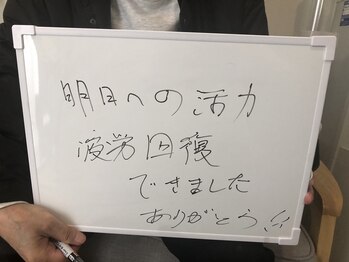 明日への活力
疲労回復
できました
ありがとう!!